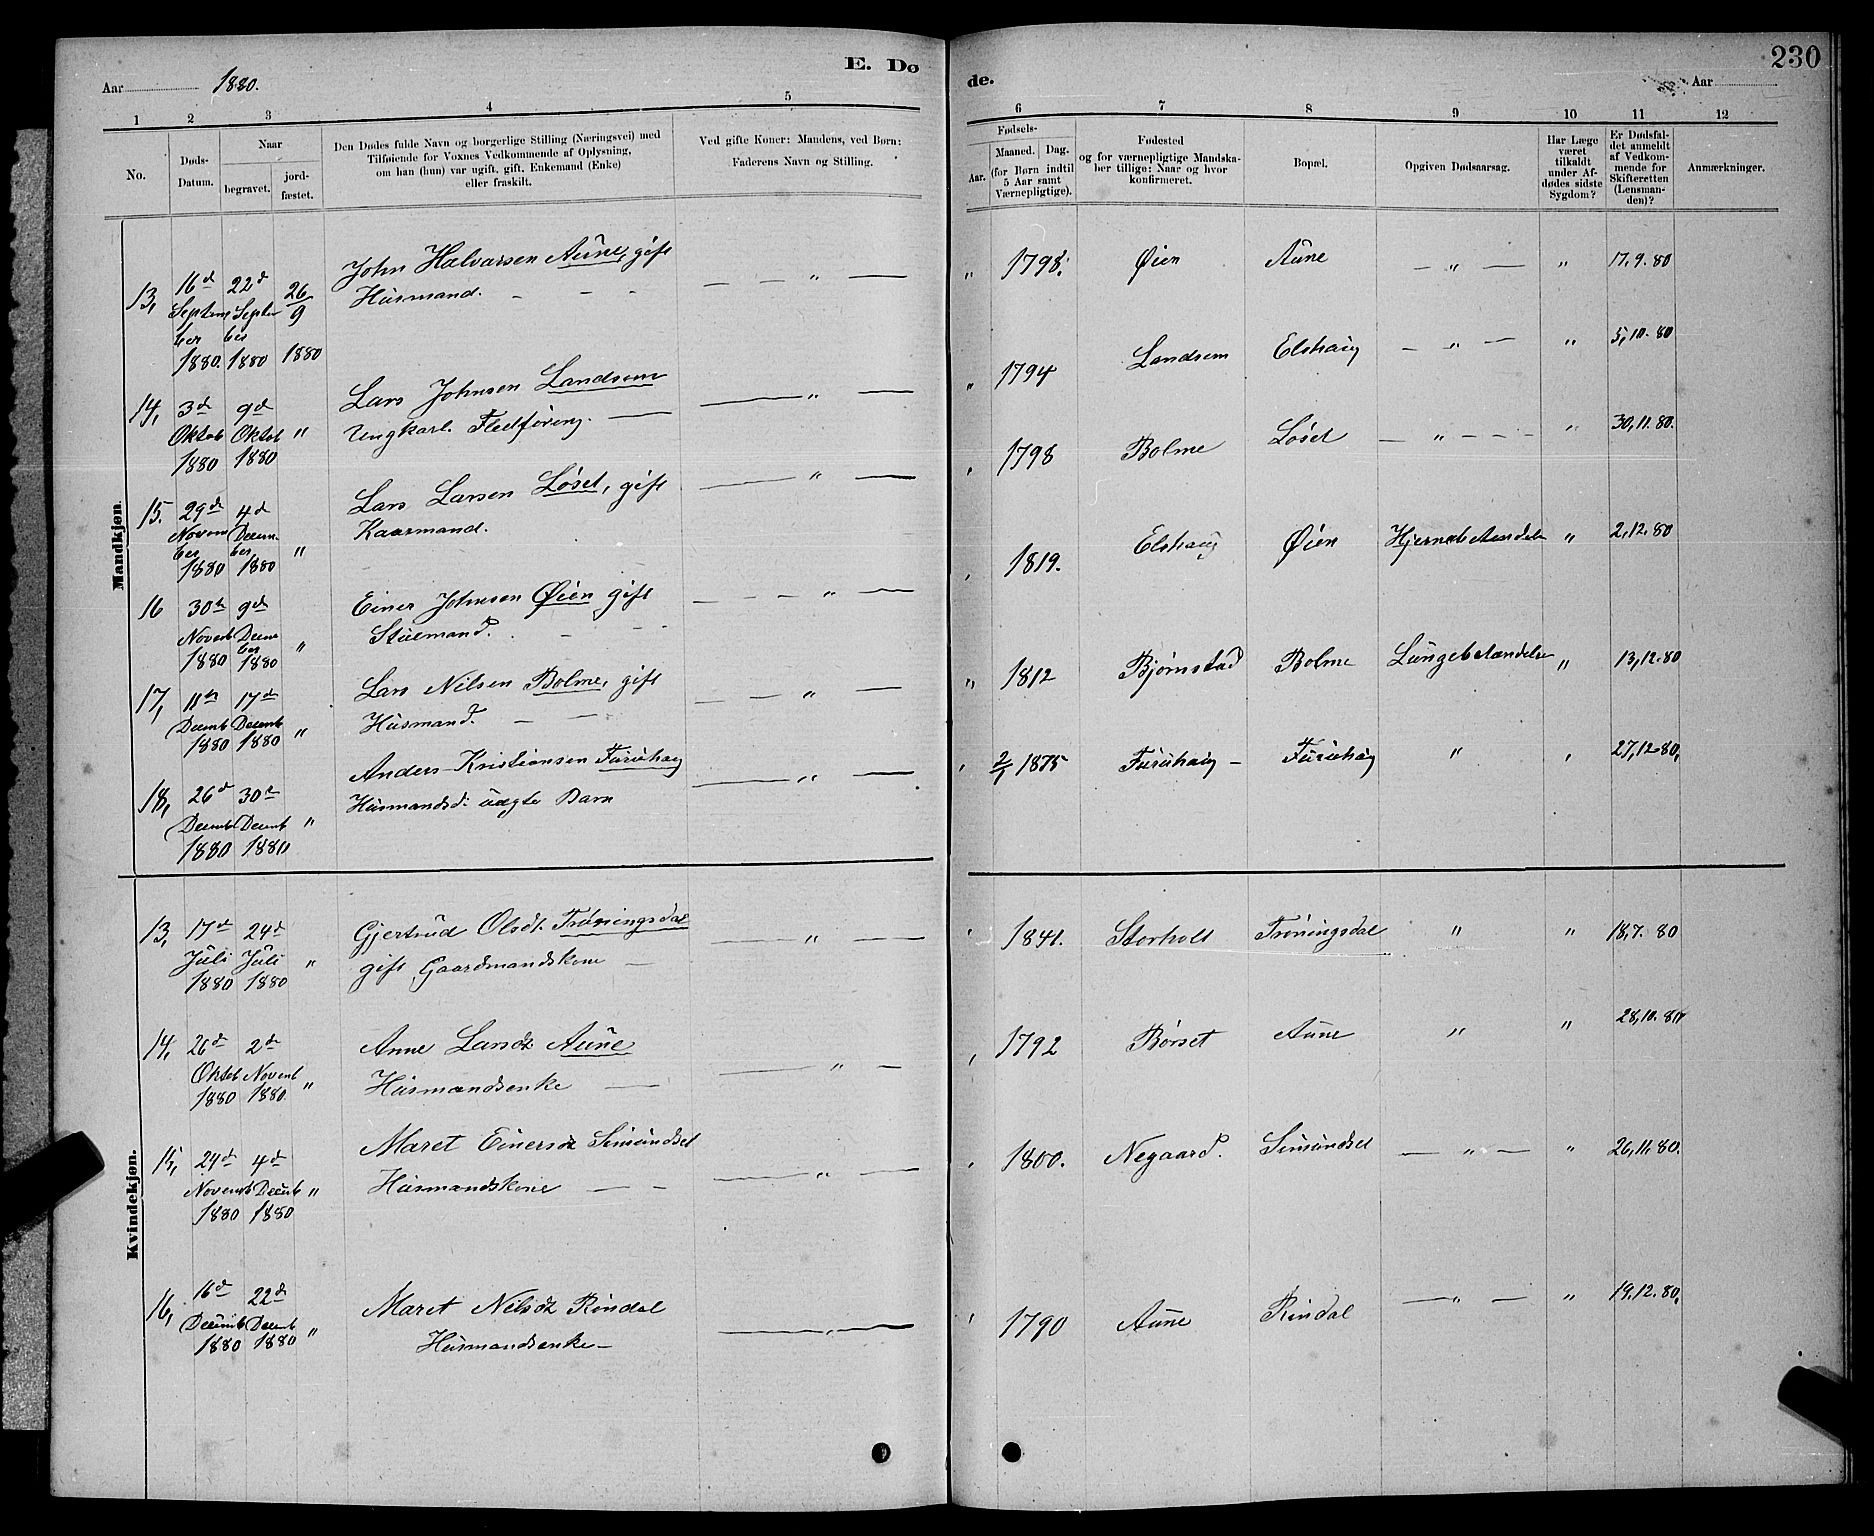 230
E. Dø
de.
Aar 1880.
Aar
1 2 3 4 5
6 7 8 9 10 11 12
No.
Døds-
Datum.
Naar
begravet.
jord-
fæstet.
Den Dødes fulde Navn og borgerlige Stilling (Næringsvei) med
Tilføiende for Voxnes Vedkommende af Oplysning,
om han (hun) var ugift, gift, Enkemand (Enke)
eller fraskilt.
Ved gifte Koner: Mandens, ved Børn:
Faderens Navn og Stilling.
Fødsels-
Aar.
Maaned. Dag.
(for Børn indtil
5 Aar samt
Værnepligtige).
Fødested
og for værnepligtige Mandska-
ber tillige: Naar og hvor
konfirmeret.
Bopæl.
Opgiven Dødsaarsag.
Har Læge
været
tilkaldt
under Af-
dødes sidste
Sygdom?
Er Dødsfal-
det anmeldt
af Vedkom-
mende for
Skifteretten
(Lensman-
den)?
Anmærkninger.
Mandkjøn.
13, 16d Septem ber 1880. 22d Septem ber 1880 26/9 1880
John Halvarsen Aune, gift
Husmand. - - -
— — " —
" 1798. Øien Aune — " — " 17.9.80
14, 3d Oktob 1880 9d Oktob 1880 "
Lars Johnsen Landsem
Ungkarl. Fledføring. —
— " —
" 1794 Landsem Elshaug — " — " 5,10.80
15. 29d Novem ber 1880 4d Decem- ber 1880 "
Lars Larsen Løset, gift
Kaarmand.
— " —
, 1798 Bolme Løset — " - - - " 30,11.80.
16 30te Novemb 1880 9de Decem ber 1880 "
Einer Johnsen Øien gift
Stuemand. - - -
— — — " —
, 1819. Elshaug Øien Hjernebetændelse " 2,12.80
17, 11te Decemb 1880 17d Decemb 1880 "
Lars Nilsen Bolme, gift
Husmand. — —
— — " —
" 1812 Bjørnstad Bolme Lungebetændelse " 13,12.80
18, 26d Decemb 1880 30te Decemb 1880 "
Anders Kristiansen Furuhaug
Husmandsd: uægte Barn
— " —
, 2/1 1875 Furuhaug - Furuhaug " , 27,12-80,
Kvindekjøn.
13, 17d Juli 1880 24d Juli 1880 "
Gjertrud Olsdt. Trøningsdal
gift Gaardmandskone —
— " —
, 1841. Storholt Trøningsdal " " 18,7.80
14, 26d Oktob 1880 2d Novemb 1880 "
Anne Larsdt Aune
Husmandsenke —
— " —
, 1792 Børset Aune " " 28,10.80
15, 24d Novemb 1880 4d Decemb 1880 "
Maret Einersdt Simundset
Husmandskone — -
— " —
, 1800. Negaard. Simundset — " — " 26,11.80.
16, 16d Decemb 1880 22d Decemb 1880 "
Maret Nilsdt Rindal
Husmandsenke -
— " —
, 1790 Aune Rindal — " — " 19.12.80,